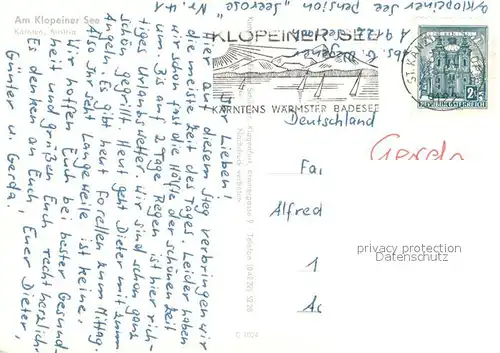 Am Klopeiner See
Kärnten, Austria
Ihr Lieben!
Hier auf diesem Steg verbringen wir
die meiste Zeit des Tages. Leider haben
wir schon fast die Hälfte der schönen Zeit
um. Bis auf 2 Tage Regen ist hier rich-
tiges Urlaubswetter. Wir sind schon ganz
schön gegrillt. Heut geht Dieter mit zum
Angeln. Es gibt heut Forellen zum Mittag.
Also Ihr seht Langeweile ist keine.
Wir hoffen Euch bei bester Gesund-
heit und grüßen Euch recht herzlich.
Es denken an Euch, Euer Dieter,
Günter u. Gerda.
KLOPEINER SEE
KÄRNTENS WÄRMSTER BADESEE
ST. KANZIAN
2S
REPUBLIK ÖSTERREICH
Klopeiner See Pension "Seerose" Nr. 41
Abs. G.
Klagenfurt, Telefon (04222)
Nachdruck verboten
C 1024
Deutschland
Gerda
Fa
Alfred
1
privacy protection
Datenschutz